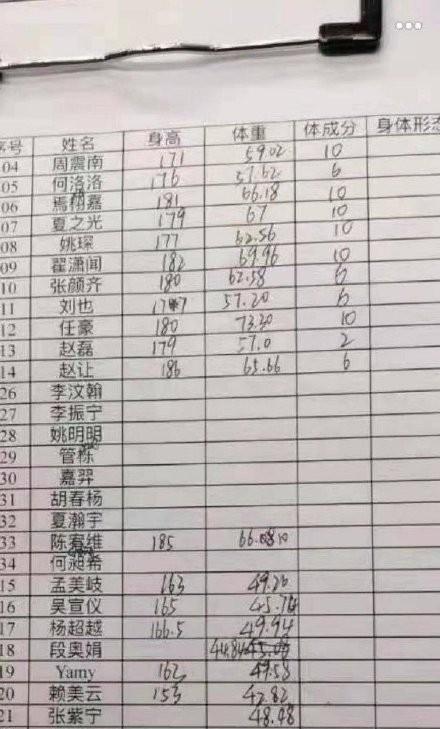 序号 姓名 身高 体重 体成分 身体形态
04 周震南 171 59.02 10
05 何洛洛 176 57.62 6
06 焉栩嘉 181 66.18 10
07 夏之光 179 67 10
08 姚琛 177 62.56 10
09 翟潇闻 182 69.96 10
10 张颜齐 180 62.58 6
11 刘也 177 57.20 6
12 任豪 180 73.30 10
13 赵磊 179 57.0 2
14 赵让 186 65.66 6
26 李汶翰
27 李振宁
28 姚明明
29 管栎
30 嘉羿
31 胡春杨
32 夏瀚宇
33 陈宥维 185 66.08 10
34 何昶希
15 孟美岐 163 49.20
16 吴宣仪 165 45.74
17 杨超越 166.5 49.94
18 段奥娟 44.84
19 Yamy 162 49.58
20 赖美云 153 42.82
21 张紫宁 48.48